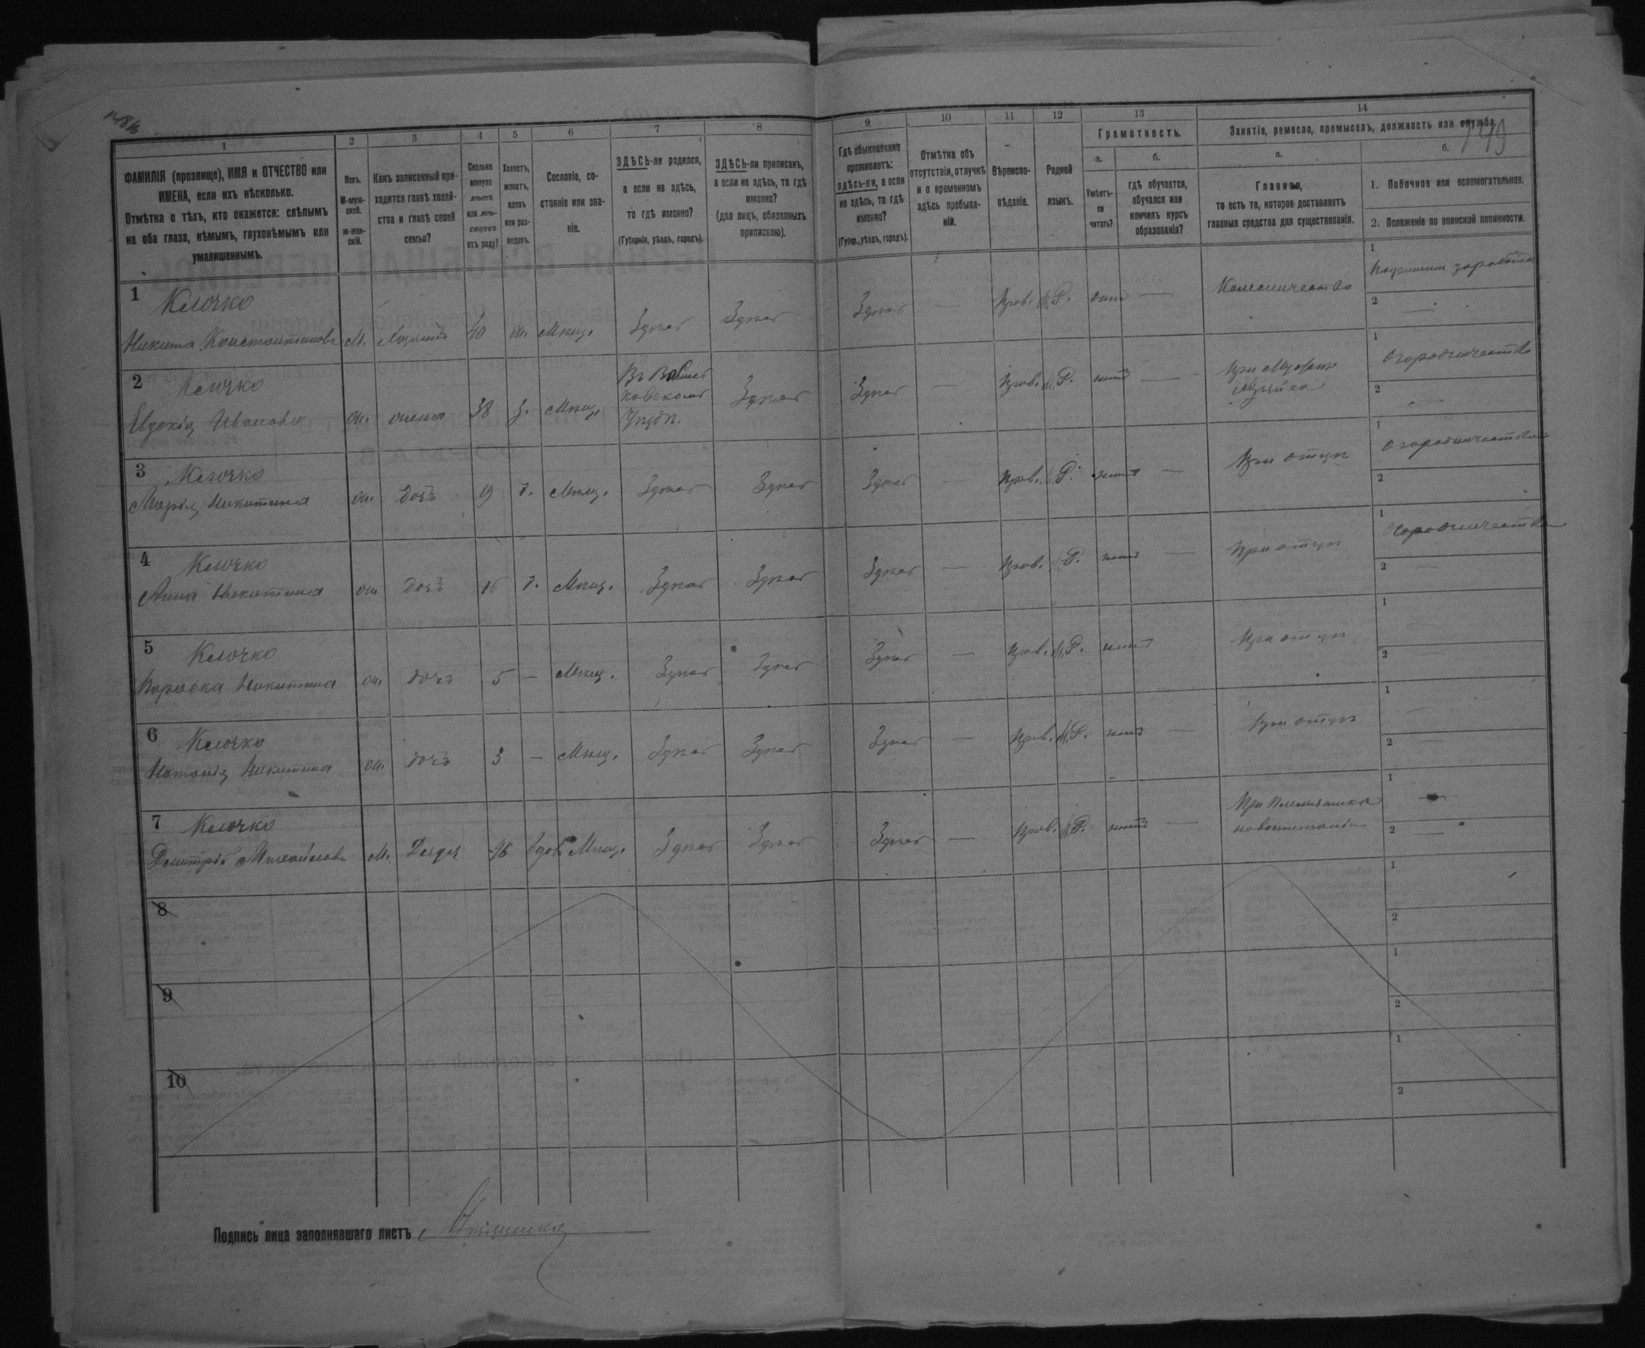 148 об
149
1
2
3
4
5
6
7
8
9
10
11
12
13
14
ФАМИЛІЯ (прозвище), ИМЯ и ОТЧЕСТВО или
ИМЕНА, если ихъ нѣсколько.
Отмѣтка о тѣхъ, кто окажется: слѣпымъ
на оба глаза, нѣмымъ, глухонѣмымъ или
умалишеннымъ.
Полъ.
М-муж-
ской.
Ж-жен-
скій.
Какъ записанный при-
ходится главѣ хозяй-
ства и главѣ своей
семьи?
Сколько
минуло
лѣтъ
или мѣ-
сяцевъ
отъ роду?
Холостъ,
женатъ,
вдовъ
или раз-
веденъ.
Сословіе, со-
стояніе или зва-
ніе.
ЗДѢСЬ-ли родился,
а если не здѣсь,
то гдѣ именно?
(Губернія, уѣздъ, городъ).
ЗДѢСЬ-ли приписанъ,
а если не здѣсь, то гдѣ
именно?
(для лицъ, обязанныхъ
припискою).
Гдѣ обыкновенно
проживаетъ:
здѣсь-ли, а если
не здѣсь, то гдѣ
именно?
(Губер., уѣздъ, городъ).
Отмѣтка объ
отсутствіи, отлучкѣ
и о временномъ
здѣсь пребыва-
ніи.
Вѣроиспо-
вѣданіе.
Родной
языкъ.
Грамотность.
а.
Умѣетъ-
ли
читать?
б.
гдѣ обучается,
обучался или
кончилъ курсъ
образованія?
Занятіе, ремесло, промыселъ, должность или служба.
а.
Главное,
то есть то, которое доставляетъ
главныя средства для существованія.
б.
1. Побочное или вспомогательное.
2. Положеніе по воинской повинности.
1
Клочко
Никита Константиновъ м. 40 ж. Мѣщ. Здѣсь Здѣсь Здѣсь — Прав. М.Р. —
1
2 —
2
Клочко
Евдокія Иванова ж. жена 38 з. Мѣщ. Здѣсь Здѣсь — Прав. М.Р. нѣтъ —
1 Огородничество
2 —
3
Клочко
Марія Никитина ж. дочь 19 д. Мѣщ. Здѣсь Здѣсь Здѣсь — Прав. М.Р. нѣтъ — При отцѣ
1 Огородничество
2
4
Клочко
Анна Никитина ж. дочь 16 д. Мѣщ. Здѣсь Здѣсь Здѣсь — Прав. М.Р. нѣтъ — При отцѣ
1 Огородничество
2 —
5
Клочко
Никитина ж. дочь 5 — Мѣщ. Здѣсь Здѣсь Здѣсь — Прав. М.Р. нѣтъ При отцѣ
1
2 —
6
Клочко
Наталія Никитина ж. дочь 3 — Мѣщ. Здѣсь Здѣсь Здѣсь — Прав. М.Р. нѣтъ — При отцѣ
1 —
2 —
7
Клочко
Дмитрій Михайловъ м. Дядя 96 вдов Мѣщ. Здѣсь Здѣсь Здѣсь — Прав. М.Р. нѣтъ — При племянникѣ
1 —
2 —
8
1
2
9
1
2
10
1
2
Подпись лица заполнявшаго листъ